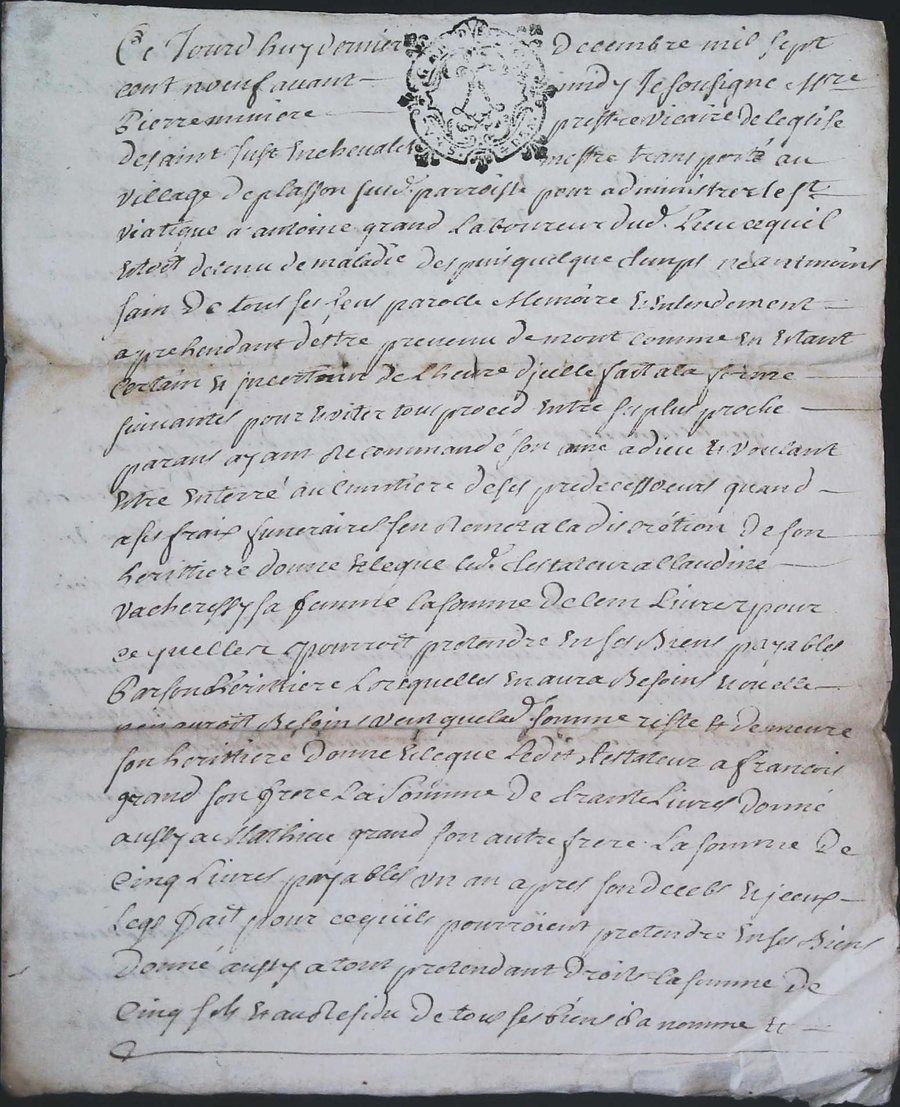 Ce Jourdhuy dernier decembre mil sept
cent neuf avant midy Je soussigne Mre
Pierre miniere prestre vicaire de leglise
de saint Just en chevalet mestre transporté au
village de plasson sud. parroisse pour administrer le st
viatique a antoine grand Laboureur dud. Lieu ce quil
estoit detenu de maladie despuis quelque temps neantmoins
sain de tous ses sens parolle Memoire & entendement
aprehendant destre prevenu de mort comme en estant
Certain & incertain de Lheure dicelle fait a la forme
suivantes pour eviter tous proces entre ses plus proche
parans ayant Recommandé son ame a dieu & voulant
estre enterré au cimitiere de ses predecesseurs quand
a ses fraix funeraires sen Remet a la discrétion de son
herittiere donne & legue led. testateur a Claudine
Vacheresse sa femme la somme de Livres pour
ce quelle pourroit pretendre en ses Biens payables
Par son hérittiere Lorsquelles en aura Besoins & ou elle
nen auroit Besoins veut que lad. somme reste & demeure
son herittiere donne & legue Ledit testateur a francois
grand son frere La Somme de trante Livres donné
aussy a Mathieu grand son autre frere La somme de
Cinq Livres payables un an apres son decebs & jceux
Legs fait pour ce quils pourroient pretendre en ses Biens
Donné aussy a tous pretendant droits la somme de
Cinq sols & au Residu de tous ses biens a nomme &